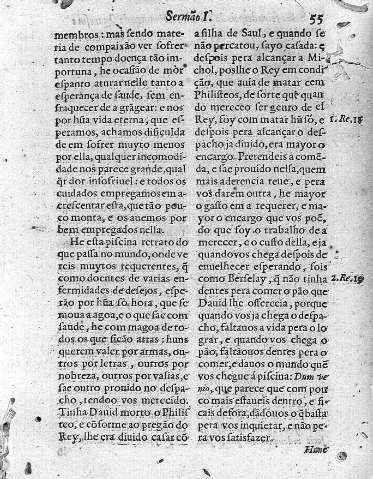 Sermão I.
55
membros: mas sendo mate-
ria de compaixão ver sofrer
tanto tempo doença tão im-
portuna, he ocasião de mòr
espanto aturar nelle tanto a
esperança de saude, sem en-
fraquecer de a grãgear: e nos
por hũa vida eterna, que es-
peramos, achamos dificulda
de em sofrer muyto menos
por ella, qualquer incomodi-
dade nos parece grande, qual
q̃r dor insofrivel: e todos os
cuidados empregamos em a-
crescentar esta, que tão pou-
co monta, e os auemos por
bem empregados nella.
He esta piscina retrato do
que passa no mundo, onde ve
reis muytos requerentes, q̃
como doentes de varias en-
fermidades de desejos, espe-
rão por hũa só hora, que se
moua a agoa, e o que sae com
saude, he com magoa de to-
dos os que ficão atras: huns
querem valer por armas, ou-
tros por letras, outros por
nobreza, outros por valias, e
sae outro prouido no despa-
cho, tendoo vos merecido.
Tinha Dauid morto o Philis
teo, e cõforme ao pregão do
Rey, lhe era diuido casar cõ
a filha de Saul, e quando se
não percatou, sayo casada: e
despois pera alcançar a Mi-
chol, poslhe o Rey em condi
ção, que auia de matar cem
Philisteos, de sorte que quan
do mereceo ser genro de el
Rey, foy com matar hũ só, e
despois pera alcançar o des-
pacho ja diuido, era mayor o
encargo. Pretendeis a comẽ-
da, e sae prouido nessa, quem
mais aderencia teue, e pera
vos darem outra, he mayor
o gasto em a requerer, e ma-
yor o encargo que vos poẽ,
do que foy o trabalho de a
merecer, e o custo della, e ja
quando vos chega despois de
enuelhecer esperando, sois
como Berselay, q̃ não tinha
dentes pera comer o pão que
Dauid lhe offerecia, porque
quando vos ja chega o despa-
cho, faltanos a vida pera o lo
grar, e quando vos chega o
pão, faltãouos dentes pera o
comer, e dauos o mundo quẽ
vos chegue á piscina: Dum ve-
nio, que parece que com pou
co mais estaueis dentro, e fi-
cais defora, dãdouos o q̃ basta
pera vos inquietar, e não pe-
ra vos satisfazer.
1. Re. 18
2. Re. 19
Hunc